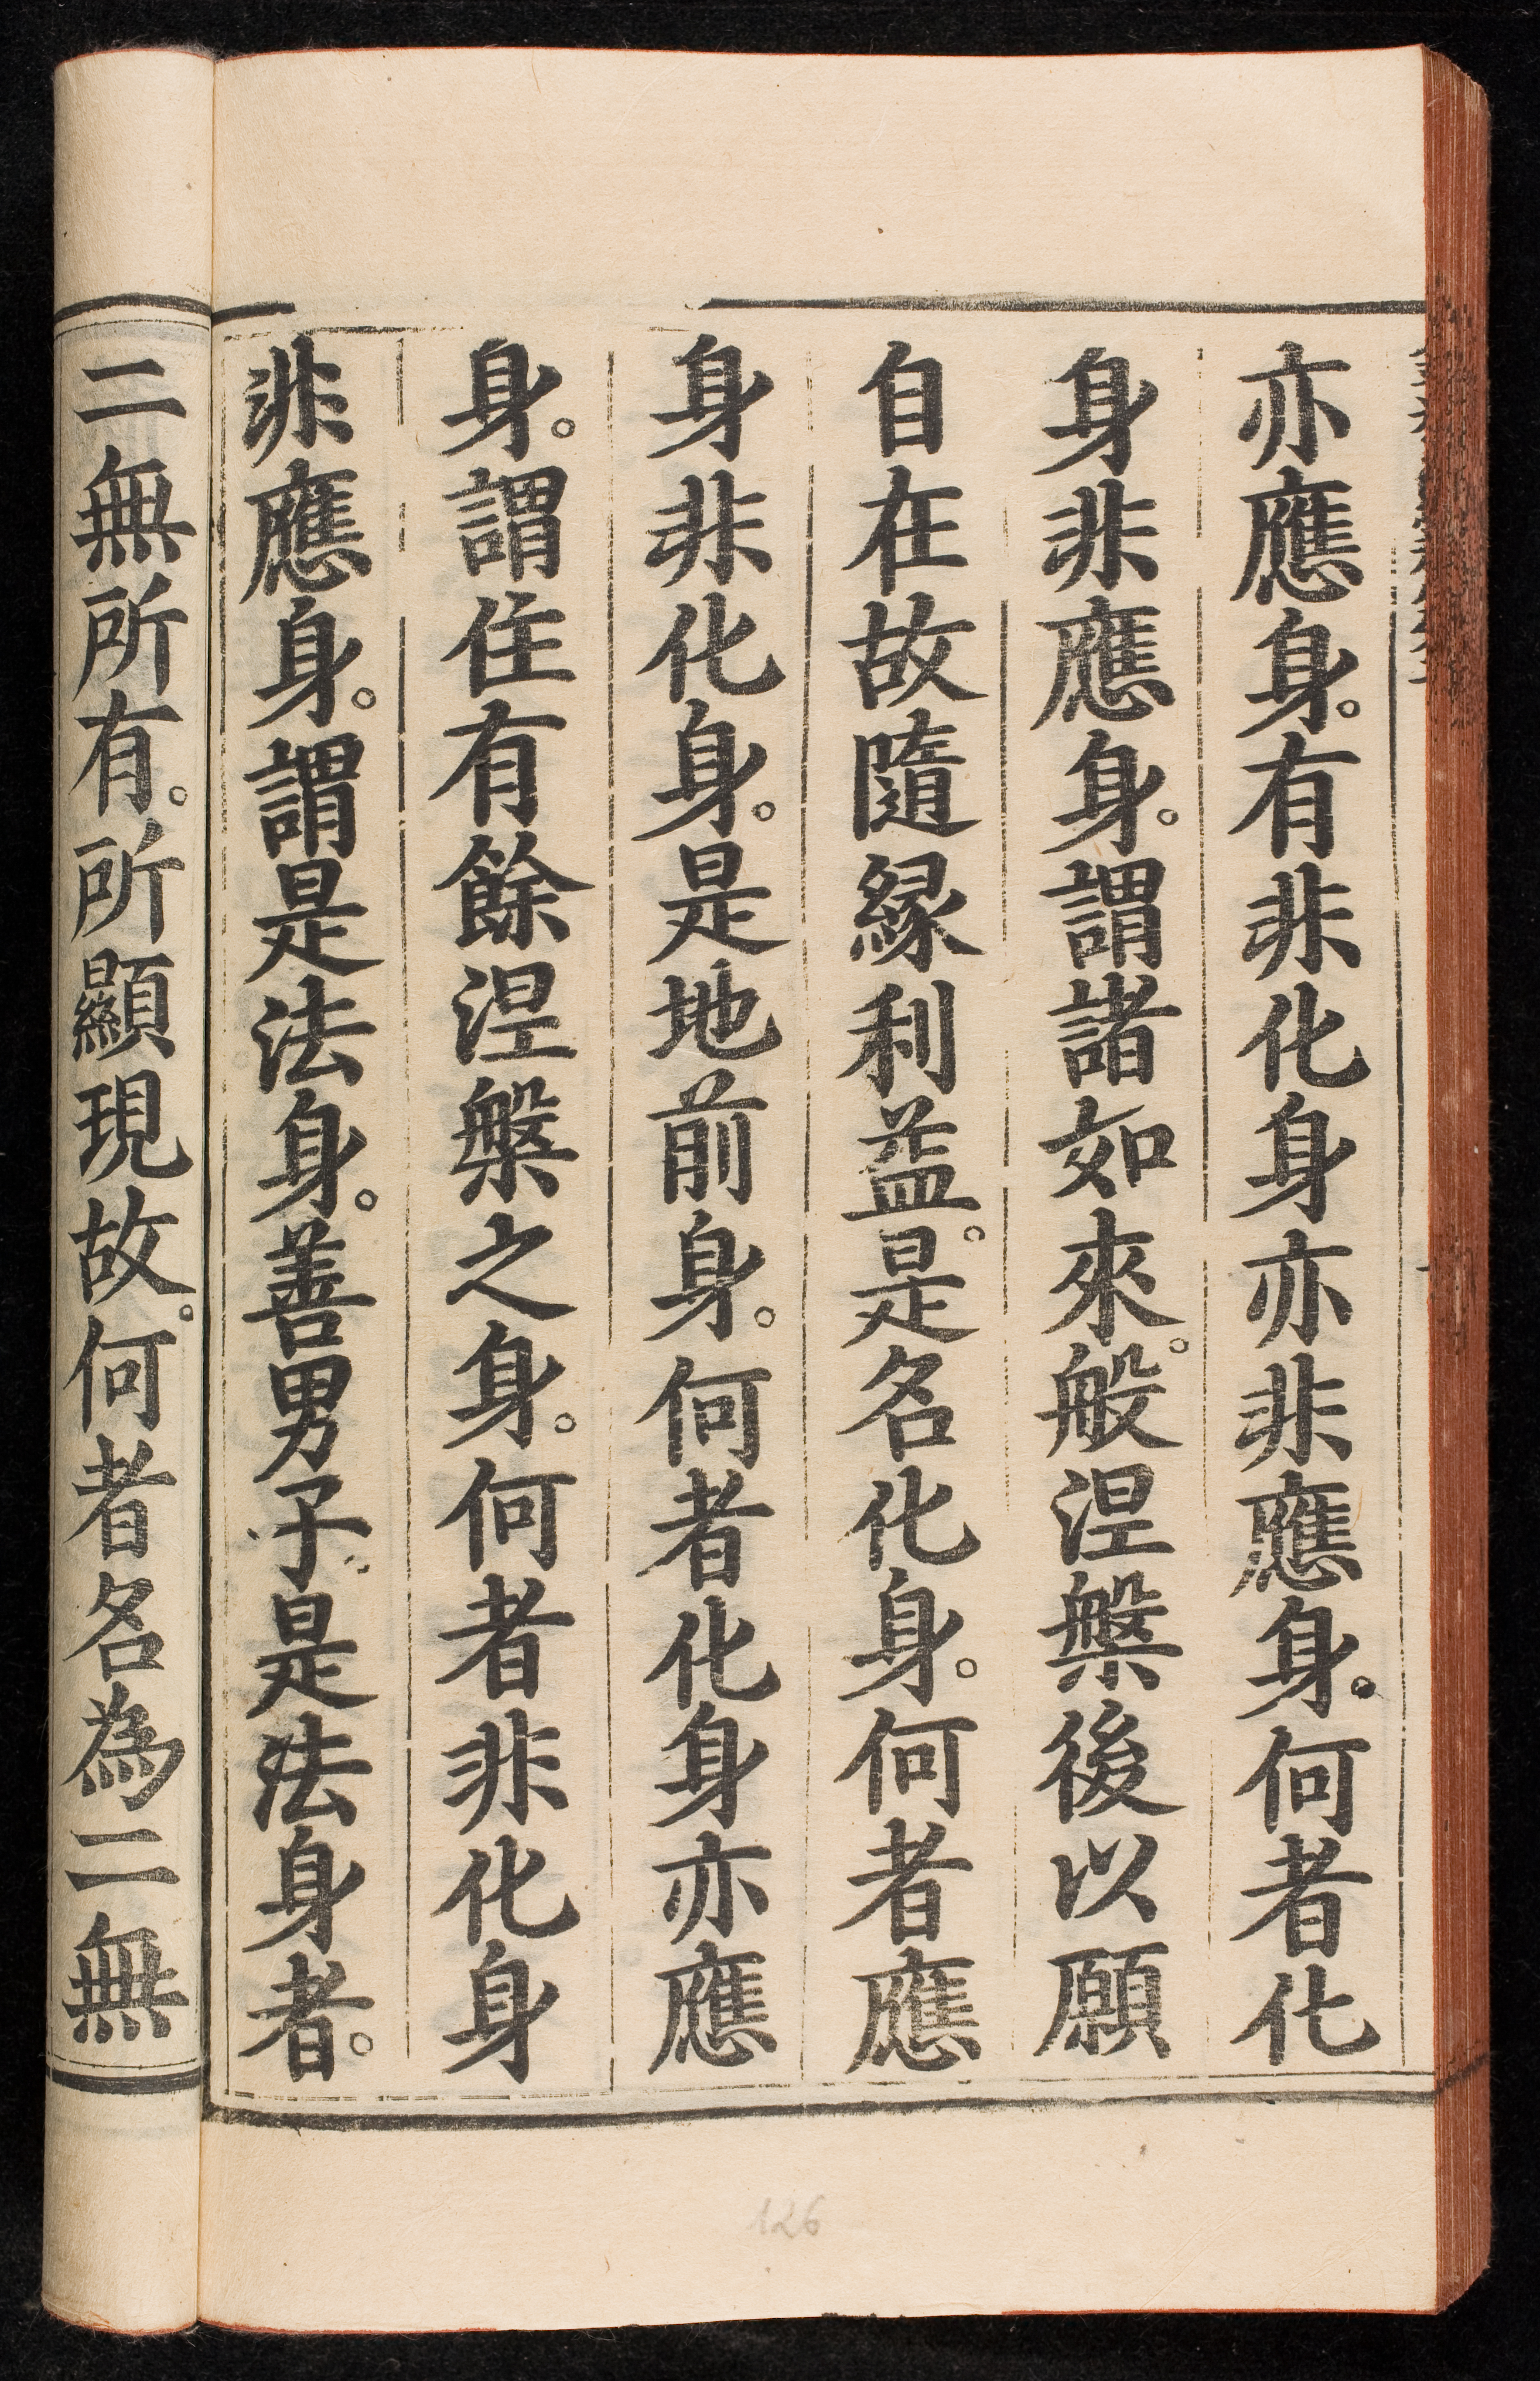 亦應身。有非化身亦非應身。何者化
身非應身。謂諸如來。般涅槃後以願
自在故隨緣利益。是名化身。何者應
身非化身。是地前身。何者化身亦應
身。謂住有餘涅槃之身。何者非化身
非應身。謂是法身。善男子是法身者。
二無所有。所顯現故。何者名為二無
126